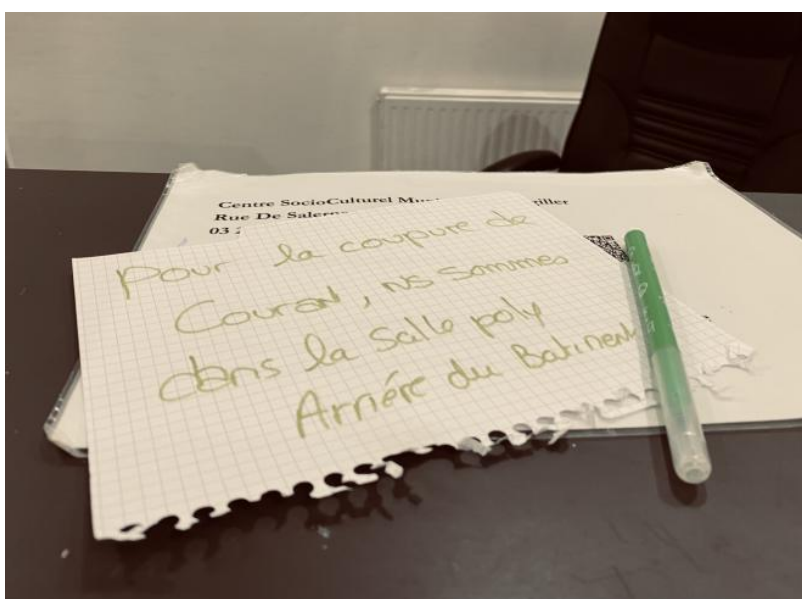 Centre SocioCulturel
Rue De
03
Pour la coupure de
Courant, ns sommes
dans la Salle poly
Arriére du Batiment